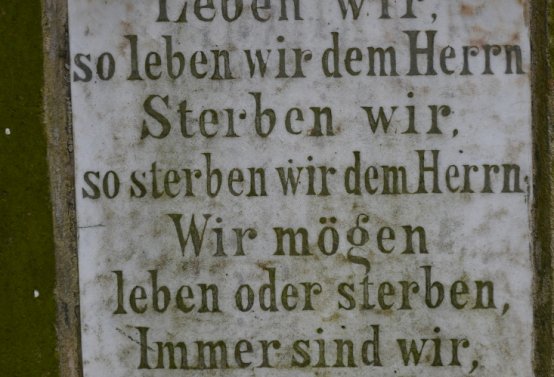 Leben wir,
so leben wir dem Herrn
Sterben wir,
so sterben wir dem Herrn,
Wir mögen
leben oder sterben,
Immer sind wir,